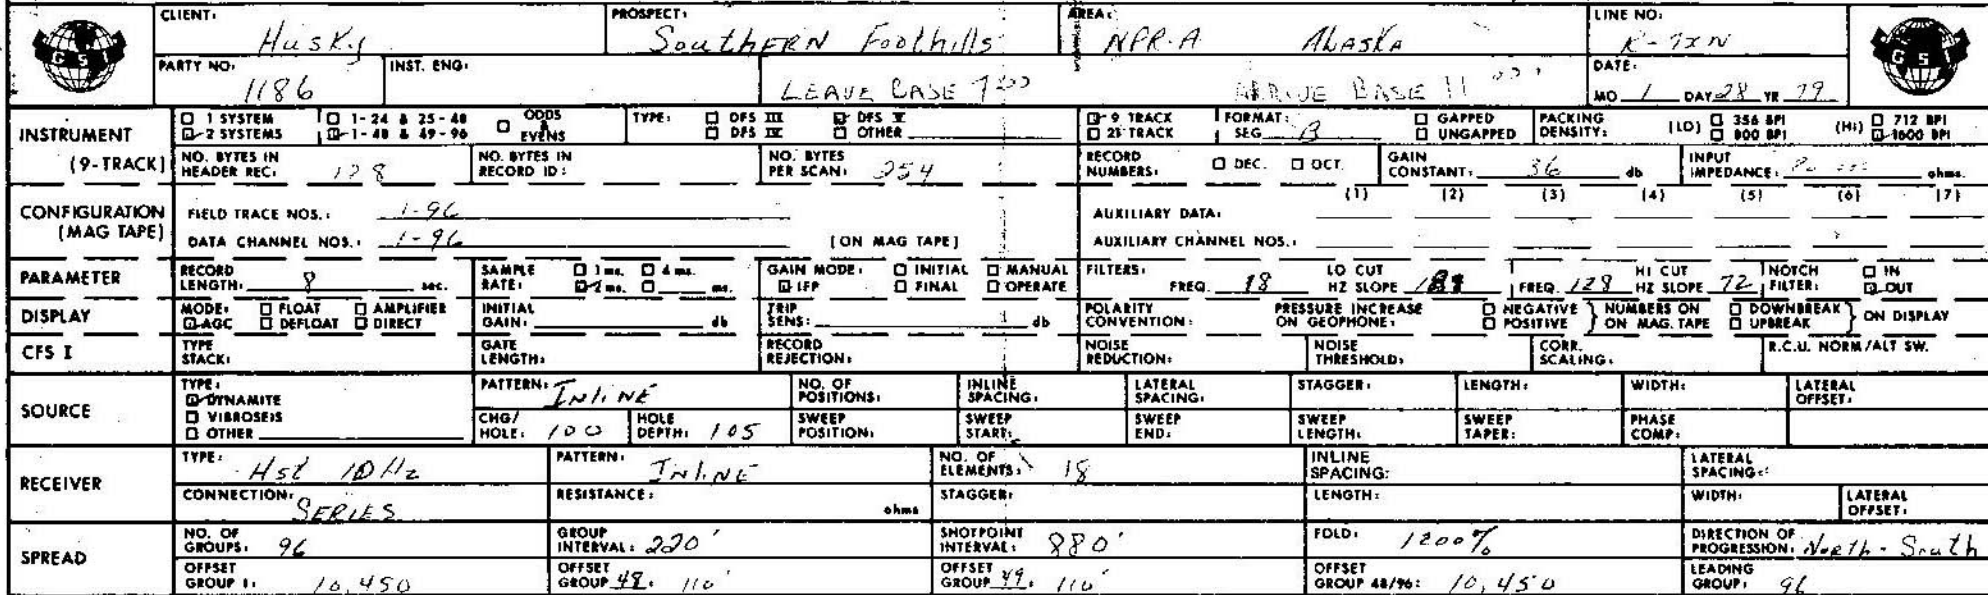 CLIENT: Husky PROSPECT: Southern Foothills AREA: NPR-A Alaska LINE NO:
GSI
PARTY NO: 1186 INST. ENG: LEAVE BASE 7:00 ARRIVE BASE 11 DATE: MO 1 DAY 28 YR 79
INSTRUMENT (9-TRACK)
☐ 1 SYSTEM ☐ 1-24 & 25-48 ☐ ODDS & EVENS TYPE: ☐ DFS III ☑ DFS V ☑ 9 TRACK FORMAT: SEG B ☐ GAPPED PACKING DENSITY: (LO) ☐ 356 BPI (HI) ☐ 712 BPI
☑ 2 SYSTEMS ☑ 1-48 & 49-96 ☐ DFS IV ☐ OTHER ☐ 21 TRACK ☐ UNGAPPED ☐ 800 BPI ☑ 1600 BPI
NO. BYTES IN HEADER REC: 128 NO. BYTES IN RECORD ID: NO. BYTES PER SCAN: 254 RECORD NUMBERS: ☐ DEC. ☐ OCT. GAIN CONSTANT: 36 db INPUT IMPEDANCE: ohms.
CONFIGURATION (MAG TAPE)
(1) (2) (3) (4) (5) (6) (7)
FIELD TRACE NOS.: 1-96 AUXILIARY DATA:
DATA CHANNEL NOS.: 1-96 (ON MAG TAPE) AUXILIARY CHANNEL NOS.:
PARAMETER RECORD LENGTH: 8 sec. SAMPLE RATE: ☐ 1 ms. ☐ 4 ms. ☑ 2 ms. ☐ ms. GAIN MODE: ☐ INITIAL ☐ MANUAL ☑ IFP ☐ FINAL ☐ OPERATE FILTERS: FREQ. 18 LO CUT HZ SLOPE FREQ. 128 HI CUT HZ SLOPE 72 NOTCH FILTER: ☐ IN ☑ OUT
DISPLAY MODE: ☐ FLOAT ☐ AMPLIFIER ☑ AGC ☐ DEFLOAT ☐ DIRECT INITIAL GAIN: db TRIP SENS: db POLARITY CONVENTION: PRESSURE INCREASE ON GEOPHONE: ☐ NEGATIVE ☐ POSITIVE } NUMBERS ON MAG. TAPE ☐ DOWNBREAK ☐ UPBREAK } ON DISPLAY
CFS I TYPE STACK: GATE LENGTH: RECORD REJECTION: NOISE REDUCTION: NOISE THRESHOLD: CORR. SCALING: R.C.U. NORM/ALT SW.
SOURCE TYPE: ☑ DYNAMITE ☐ VIBROSEIS ☐ OTHER PATTERN: Inline NO. OF POSITIONS: INLINE SPACING: LATERAL SPACING: STAGGER: LENGTH: WIDTH: LATERAL OFFSET:
CHG/HOLE: 100 HOLE DEPTH: 105 SWEEP POSITION: SWEEP START: SWEEP END: SWEEP LENGTH: SWEEP TAPER: PHASE COMP:
RECEIVER TYPE: Hst 10 Hz PATTERN: Inline NO. OF ELEMENTS: 18 INLINE SPACING: LATERAL SPACING:
CONNECTION: SERIES RESISTANCE: ohms STAGGER: LENGTH: WIDTH: LATERAL OFFSET:
SPREAD NO. OF GROUPS: 96 GROUP INTERVAL: 220' SHOTPOINT INTERVAL: 880' FOLD: 1200% DIRECTION OF PROGRESSION: North - South
OFFSET GROUP 1: 10,450 OFFSET GROUP 48: 110' OFFSET GROUP 49: 110' OFFSET GROUP 48/96: 10,450 LEADING GROUP: 96
GSI